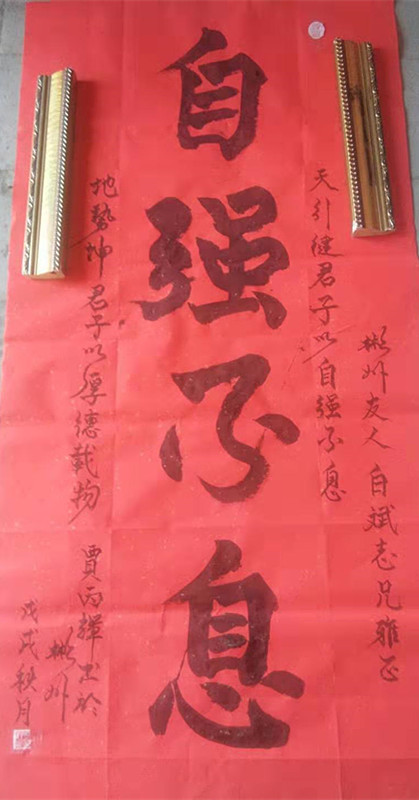 彬州友人白斌志兄雅正
天行健君子以自强不息
自强不息
地勢坤君子以厚德載物
賈丙輝 於
彬州
戊戌秋月